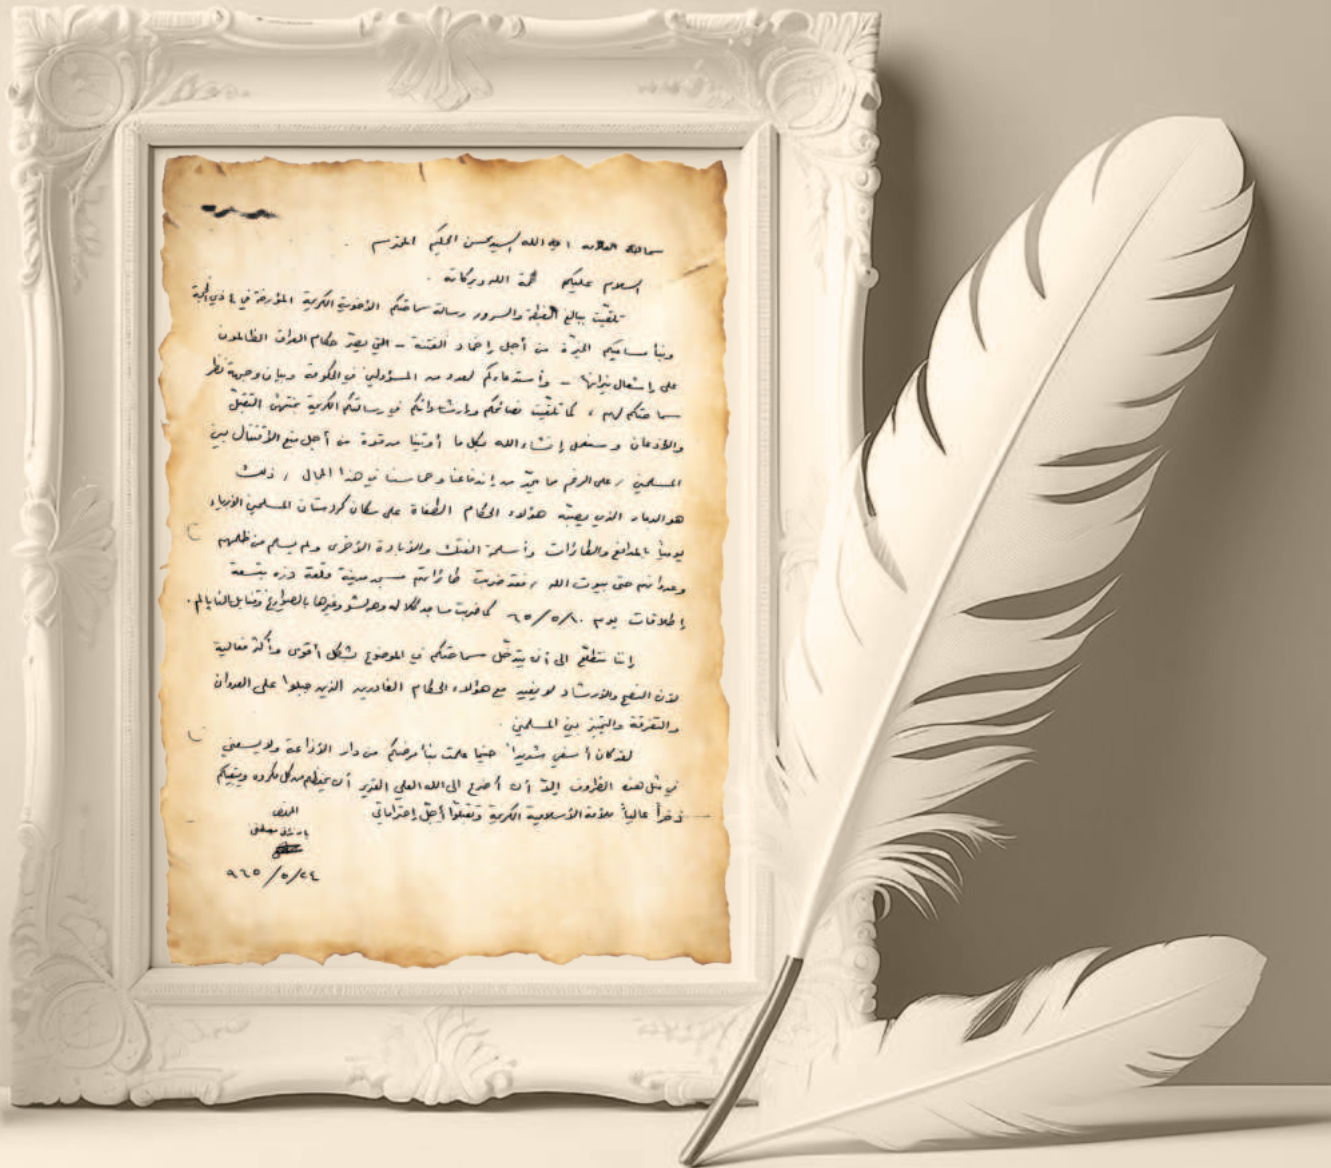 سماحة العلامة آية الله السيد محسن الحكيم المحترم .
السلام عليكم رحمة الله وبركاته .
تلقيت ببالغ الغبطة والسرور رسالة سماحتكم الأخوية الكريمة المؤرخة في ٤ ذي الحجة
ونبأ مساعيكم الخيرة من أجل إخماد الفتنة – التي يصر حكام العراق الظالمون
على إشعال نيرانها – وأستدعاءكم لعدد من المسؤولين في الحكومة وبيان وجهة نظر
سماحتكم لهم ، كما تلقيت نصائحكم وارشاداتكم في رسالتكم الكريمة بمنتهى التقبل
والأذعان وسنعمل إنشاء الله بكل ما أوتينا من قوة من أجل منع الأقتتال بين
المسلمين ، على الرغم مما يحد من إندفاعنا وحماسنا في هذا المجال ، ذلك
هو الدمار الذي يصبه هؤلاء الحكام الطغاة على سكان كردستان المسلمين الأبرياء
يومياً بالمدافع والطائرات وأسلحة الفتك والأبادة الأخرى ولم يسلم من ظلمهم
وعدوانهم حتى بيوت الله ، فقد ضربت طائراتهم مسجد مدينة قلعة دزه بتسعة
إطلاقات يوم ٦٥/٥/١٠ كما ضربت مساجد كلاله وغيرها بالصواريخ وقنابل النابالم .
إننا نتطلع الى أن يتدخل سماحتكم في الموضوع بشكل أقوى وأكثر فعالية
لأن النصح والأرشاد لا يفيد مع هؤلاء الحكام الغادرين الذين جبلوا على العدوان
والتفرقة والتمييز بين المسلمين .
لقد كان أسفي شديداً حينما علمت بنبأ مرضكم من دار الأذاعة ولا يسعني
في مثل هذه الظروف إلا أن أضرع الى الله العلي القدير أن يحفظكم من كل مكروه ويبقيكم
ذخراً عالياً للأمة الأسلامية الكريمة وتقبلوا أجل إحتراماتي
المخلص
بارزاني مصطفى
٩٦٥/٥/٢٤